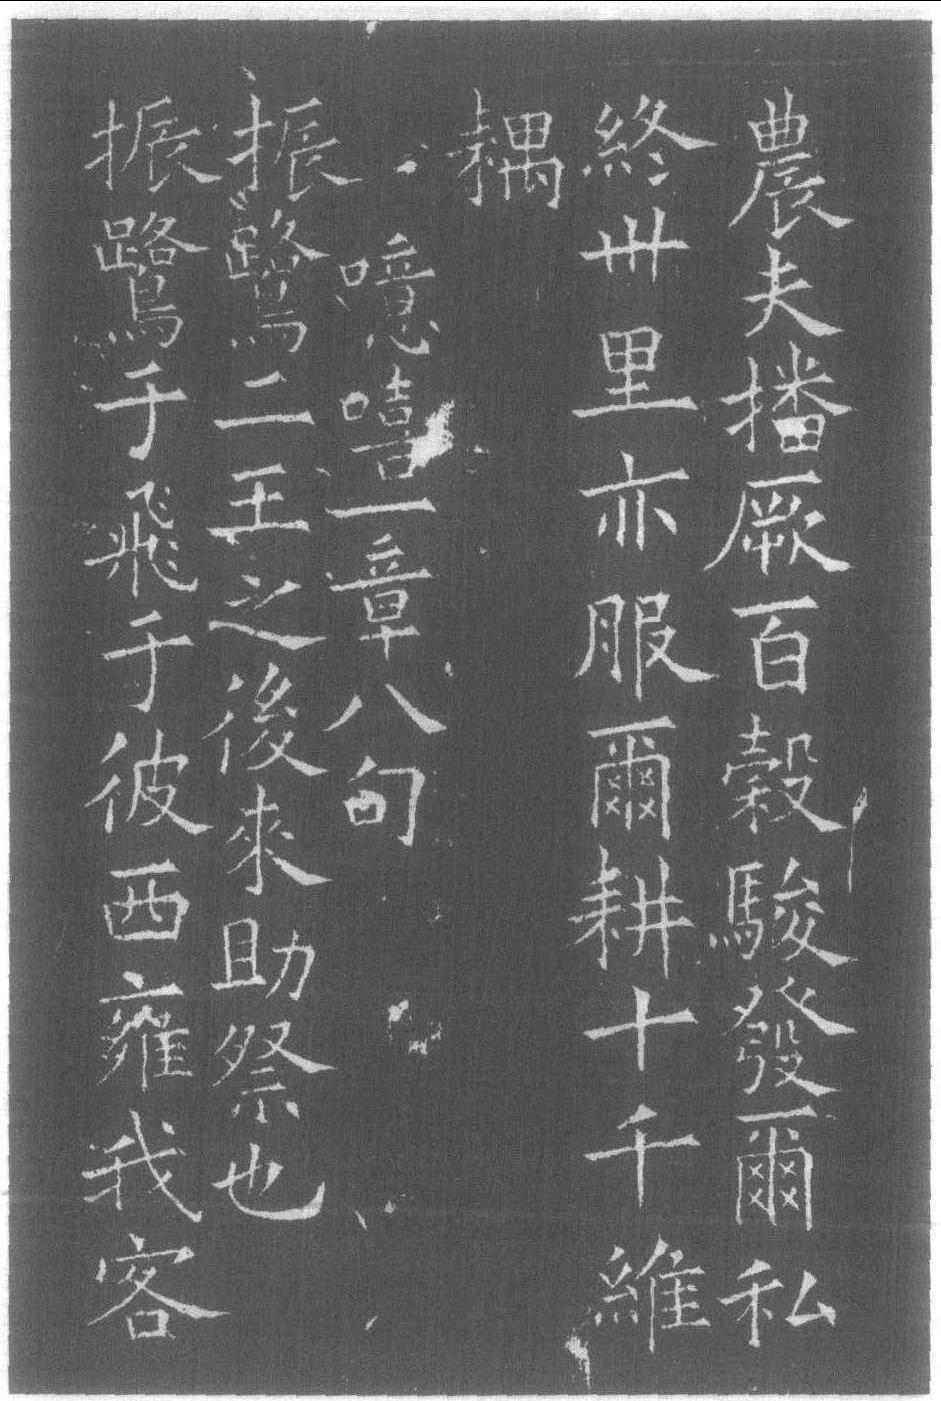 農夫播厥百穀駿發爾私
終卅里亦服爾耕十千維
耦
噫嘻一章八句
振鷺二王之後來助祭也
振鷺于飛于彼西雍我客